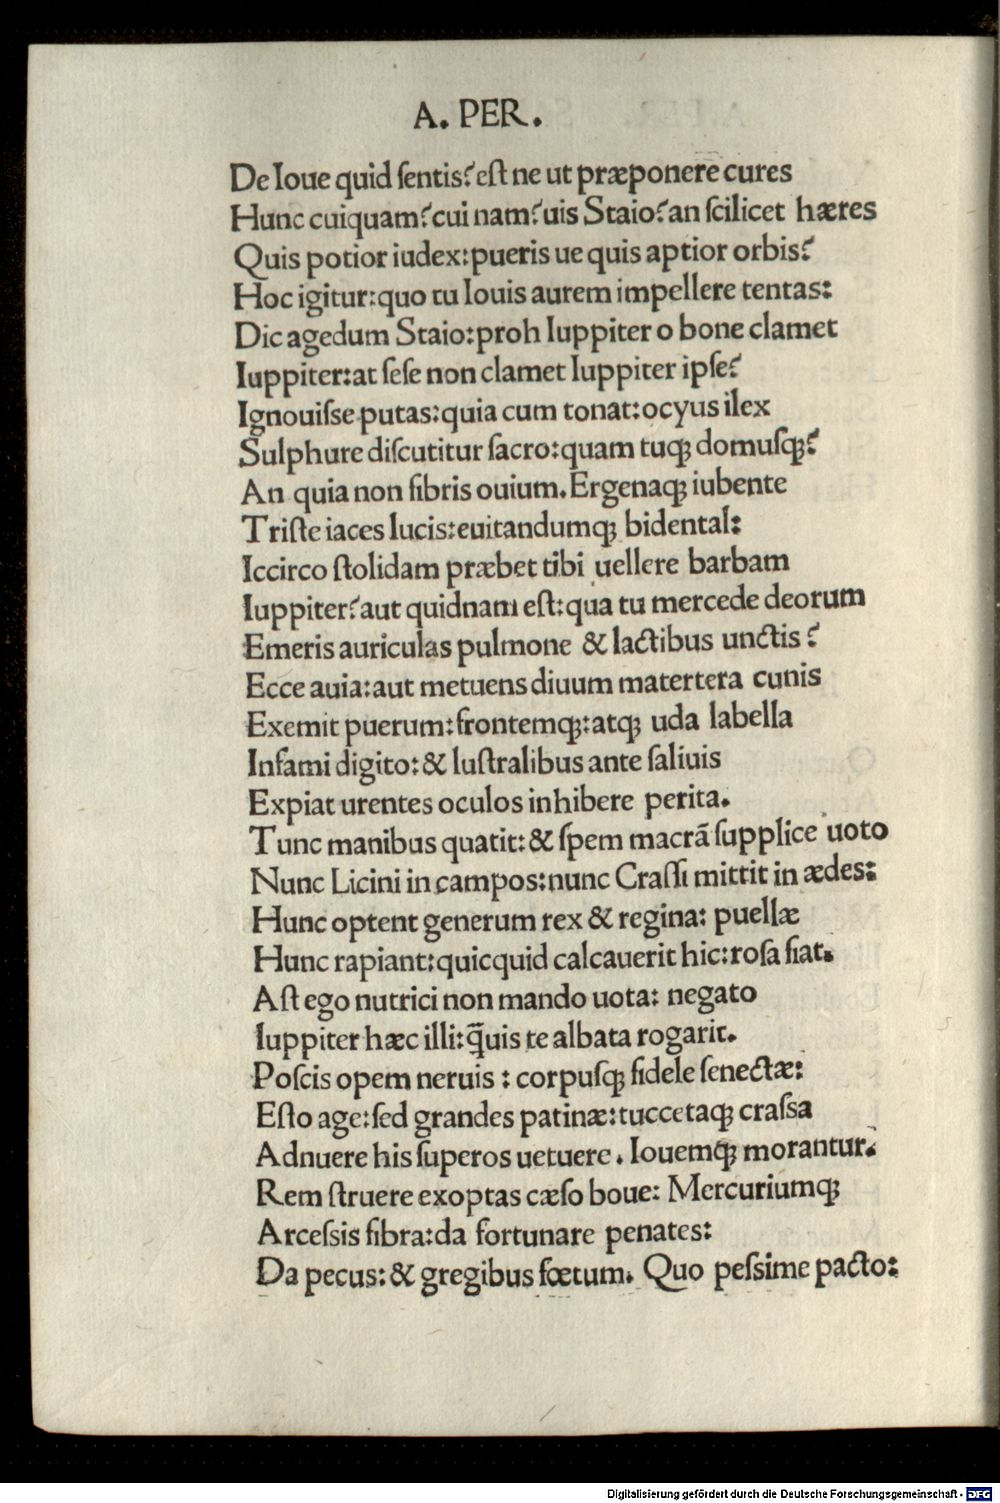 A. PER.
De Ioue quid ſentis? eſt ne ut præponere cures
Hunc cuiquam? cui nam? uis Staio? an ſcilicet hæres
Quis potior iudex: pueris ue quis aptior orbis?
Hoc igitur: quo tu Iouis aurem impellere tentas:
Dic agedum Staio: proh Iuppiter o bone clamet
Iuppiter: at ſeſe non clamet Iuppiter ipſe?
Ignouiſſe putas: quia cum tonat: ocyus ilex
Sulphure diſcutitur ſacro: quam tuq; domuſq;?
An quia non fibris ouium. Ergenaq; iubente
Triſte iaces lucis: euitandumq; bidental:
Iccirco ſtolidam præbet tibi uellere barbam
Iuppiter? aut quidnam eſt: qua tu mercede deorum
Emeris auriculas pulmone & lactibus unctis?
Ecce auia: aut metuens diuum matertera cunis
Exemit puerum: frontemq;: atq; uda labella
Infami digito: & luſtralibus ante ſaliuis
Expiat urentes oculos inhibere perita.
Tunc manibus quatit: & ſpem macrã ſupplice uoto
Nunc Licini in campos: nunc Craſſi mittit in ædes:
Hunc optent generum rex & regina: puellæ
Hunc rapiant: quicquid calcauerit hic: roſa fiat.
Aſt ego nutrici non mando uota: negato
Iuppiter hæc illi: q̃uis te albata rogarit.
Poſcis opem neruis : corpuſq; fidele ſenectæ:
Eſto age: ſed grandes patinæ: tuccetaq; craſsa
Adnuere his ſuperos uetuere. Iouemq; morantur.
Rem ſtruere exoptas cæſo boue: Mercuriumq;
Arceſsis fibra: da fortunare penates:
Da pecus: & gregibus fœtum. Quo peſsime pacto:
Digitalisierung gefördert durch die Deutsche Forschungsgemeinschaft - DFG